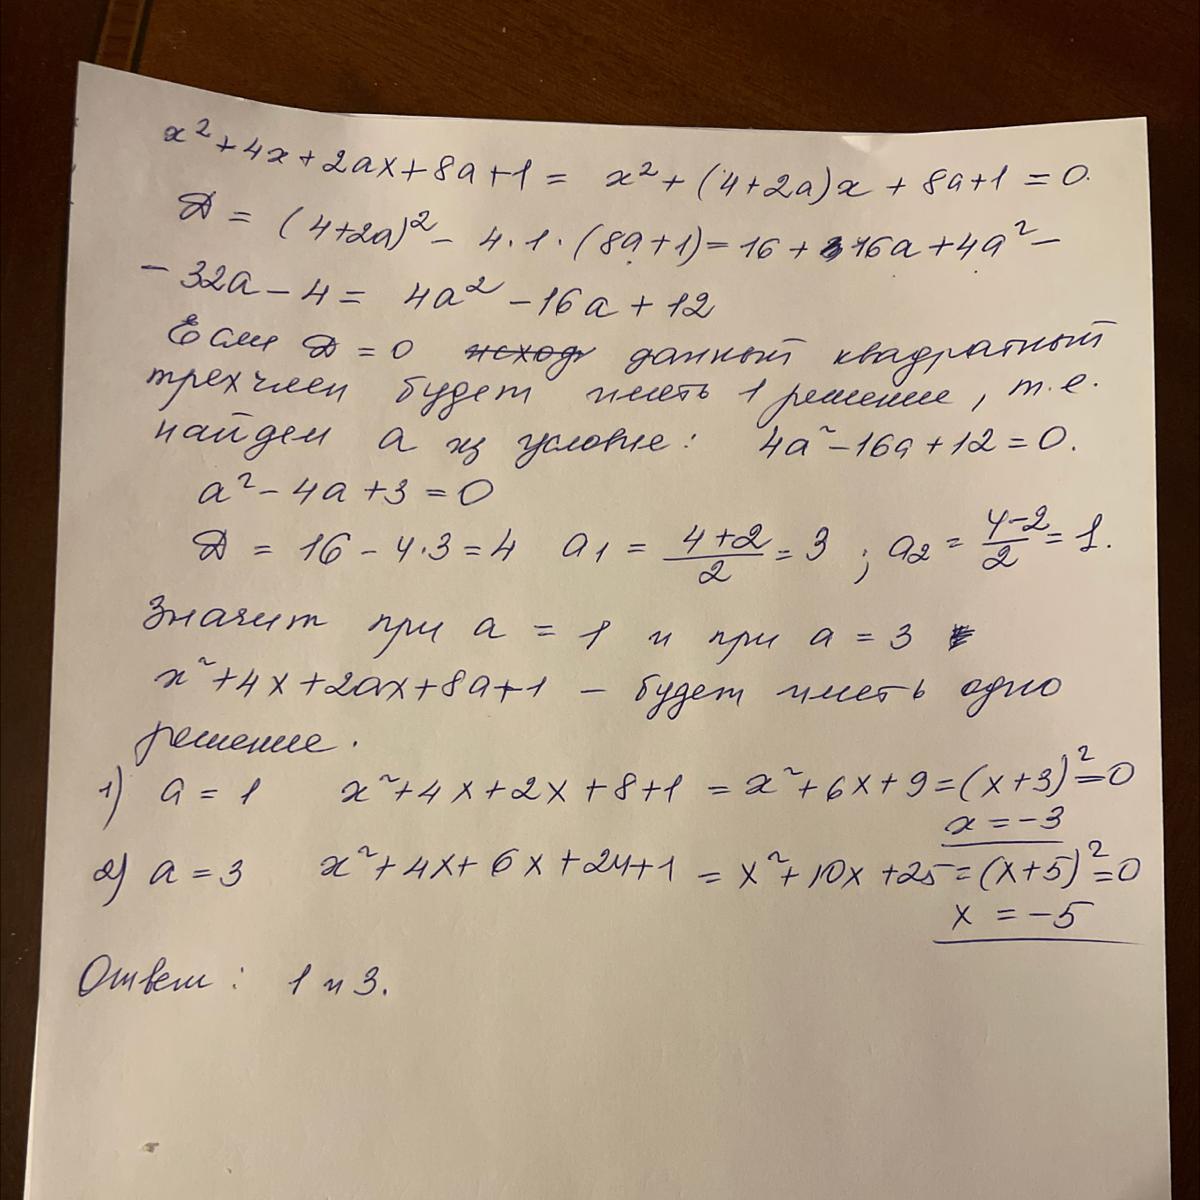 x² + 4x + 2ax + 8a + 1 = x² + (4 + 2a)x + 8a + 1 = 0.
D = (4+2a)² - 4·1·(8a+1) = 16 + 16a + 4a² -
- 32a - 4 = 4a² - 16a + 12
Если D = 0 данный квадратный
трехчлен будет иметь 1 решение, т.е.
найдем a из условие: 4a² - 16a + 12 = 0.
a² - 4a + 3 = 0
D = 16 - 4·3 = 4 a₁ = (4+2)/2 = 3 ; a₂ = (4-2)/2 = 1.
Значит при a = 1 и при a = 3
x² + 4x + 2ax + 8a + 1 - будет иметь одно
решение.
1) a = 1 x² + 4x + 2x + 8 + 1 = x² + 6x + 9 = (x+3)² = 0
x = -3
2) a = 3 x² + 4x + 6x + 24 + 1 = x² + 10x + 25 = (x+5)² = 0
x = -5
Ответ: 1 и 3.